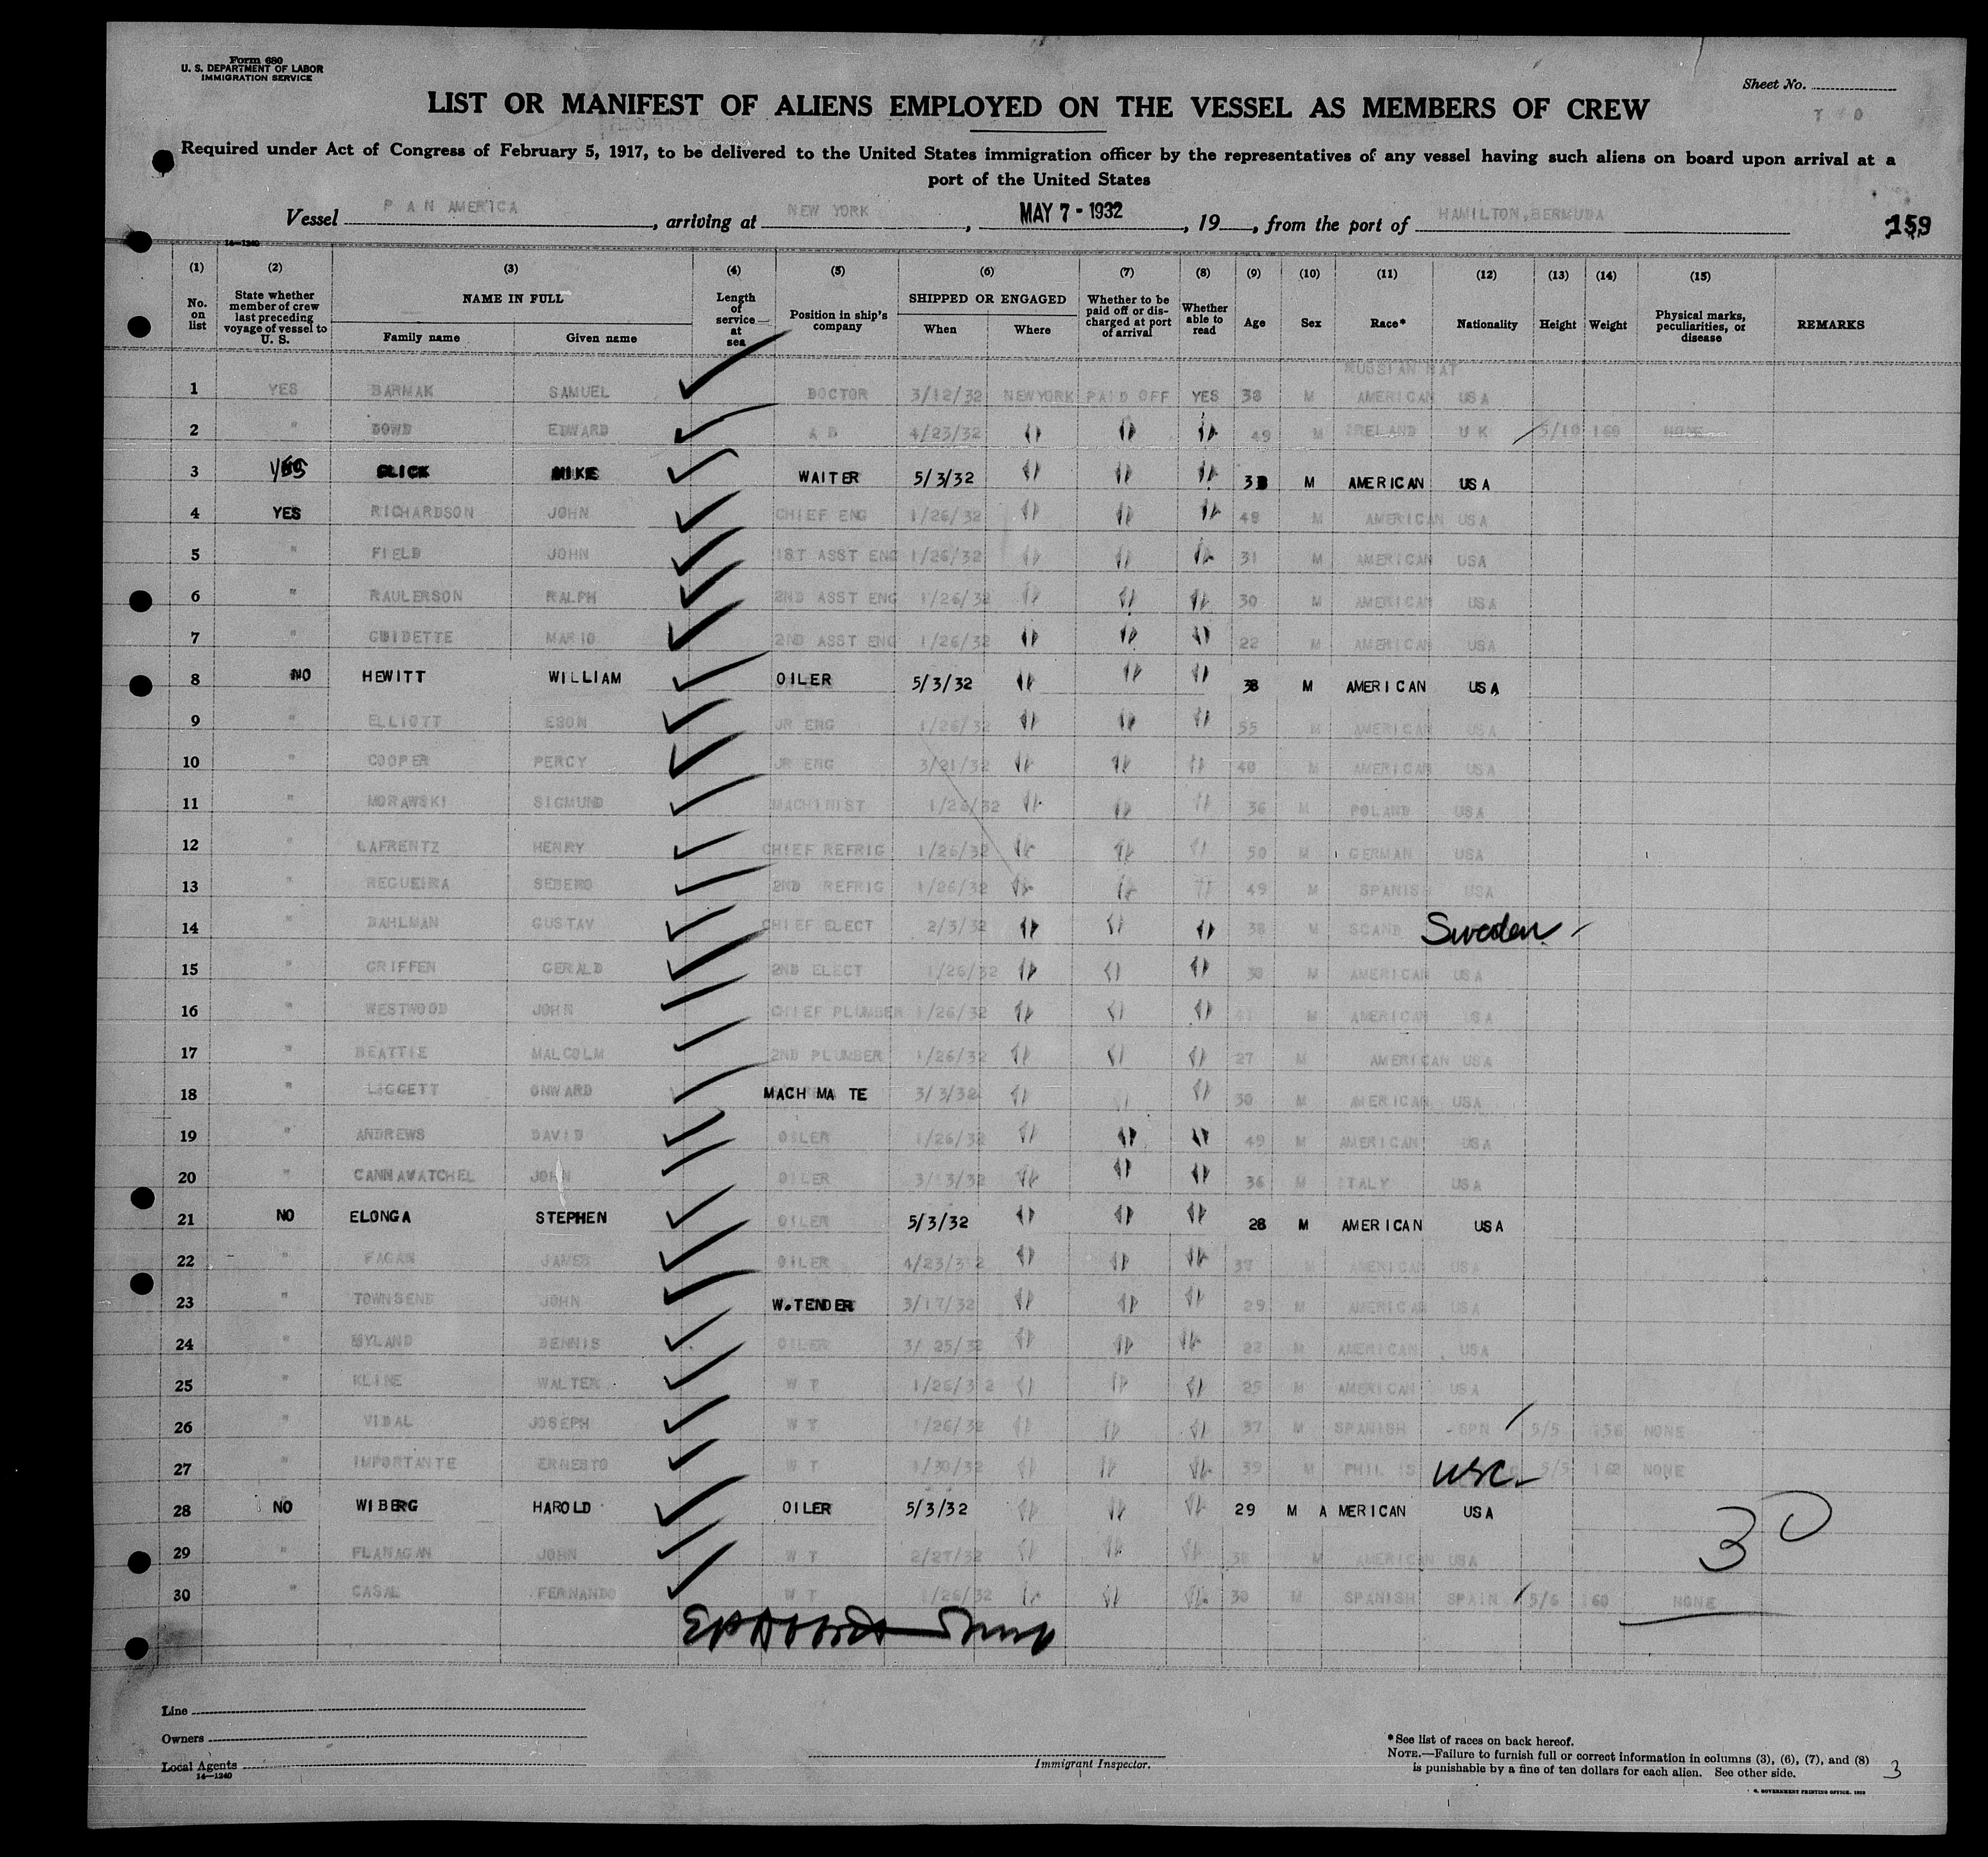 Form 680
U. S. DEPARTMENT OF LABOR
IMMIGRATION SERVICE
Sheet No.
LIST OR MANIFEST OF ALIENS EMPLOYED ON THE VESSEL AS MEMBERS OF CREW
Required under Act of Congress of February 5, 1917, to be delivered to the United States immigration officer by the representatives of any vessel having such aliens on board upon arrival at a
port of the United States
Vessel PAN AMERICA, arriving at NEW YORK, MAY 7 - 1932, 19, from the port of HAMILTON, BERMUDA 159
14—1240
(1) (2) (3) (4) (5) (6) (7) (8) (9) (10) (11) (12) (13) (14) (15)
No. on list State whether member of crew last preceding voyage of vessel to U. S. NAME IN FULL Family name Given name Length of service at sea Position in ship's company SHIPPED OR ENGAGED When Where Whether to be paid off or discharged at port of arrival Whether able to read Age Sex Race* Nationality Height Weight Physical marks, peculiarities, or disease REMARKS
RUSSIAN NAT
1 YES BARMAK SAMUEL DOCTOR 3/12/32 NEW YORK PAID OFF YES 38 M AMERICAN USA
2 " DOWD EDWARD A B 4/23/32 " " " 49 M IRELAND U K 5/10 160 NONE
3 YES GLICK MIKE WAITER 5/3/32 " " " M AMERICAN USA
4 YES RICHARDSON JOHN CHIEF ENG 1/26/32 " " " 48 M AMERICAN USA
5 " FIELD JOHN 1ST ASST ENG 1/26/32 " " " 31 M AMERICAN USA
6 " RAULERSON RALPH 2ND ASST ENG 1/26/32 " " " 30 M AMERICAN USA
7 " GUIDETTE MARIO 2ND ASST ENG 1/26/32 " " " 22 M AMERICAN USA
8 NO HEWITT WILLIAM OILER 5/3/32 " " " 38 M AMERICAN USA
9 " ELLIOTT ESON JR ENG 1/26/32 " " " 55 M AMERICAN USA
10 " COOPER PERCY JR ENG 3/21/32 " " " 40 M AMERICAN USA
11 " MORAWSKI SIGMUND MACHINIST 1/26/32 " " " 36 M POLAND USA
12 " LAFRENTZ HENRY CHIEF REFRIG 1/26/32 " " " 50 M GERMAN USA
13 " REGUEIRA SEBERO 2ND REFRIG 1/26/32 " " " 49 M SPANISH USA
14 " DAHLMAN GUSTAV CHIEF ELECT 2/3/32 " " " 38 M SCAND Sweden
15 " GRIFFEN GERALD 2ND ELECT 1/26/32 " " " 30 M AMERICAN USA
16 " WESTWOOD JOHN CHIEF PLUMBER 1/26/32 " " " M AMERICAN USA
17 " BEATTIE MALCOLM 2ND PLUMBER 1/26/32 " " " 27 M AMERICAN USA
18 " LIGGETT ONWARD MACH MATE 3/3/32 " " " 30 M AMERICAN USA
19 " ANDREWS DAVID OILER 1/26/32 " " " 49 M AMERICAN USA
20 " CANNAWATCHEL JOHN OILER 3/13/32 " " " 36 M ITALY USA
21 NO ELONGA STEPHEN OILER 5/3/32 " " " 28 M AMERICAN USA
22 " FAGAN JAMES OILER 4/23/32 " " " 37 M AMERICAN USA
23 " TOWNSEND JOHN W.TENDER 3/17/32 " " " 29 M AMERICAN USA
24 " HYLAND DENNIS OILER 3/25/32 " " " 22 M AMERICAN USA
25 " KLINE WALTER W T 1/26/32 " " " 25 M AMERICAN USA
26 " VIDAL JOSEPH W T 1/26/32 " " " 37 M SPANISH SPN 5/5 156 NONE
27 " IMPORTANTE ERNESTO W T 1/30/32 " " " 39 M PHIL IS USC 5/5 160 NONE
28 NO WIBERG HAROLD OILER 5/3/32 " " " 29 M AMERICAN USA
29 " FLANAGAN JOHN W T 2/27/32 " " " 38 M AMERICAN USA
30 " CASAL FERNANDO W T 1/26/32 " " " 30 M SPANISH SPAIN 5/6 160 NONE
30
Line
Owners
Local Agents
14—1240
Immigrant Inspector.
*See list of races on back hereof.
NOTE.—Failure to furnish full or correct information in columns (3), (6), (7), and (8)
is punishable by a fine of ten dollars for each alien. See other side.
3